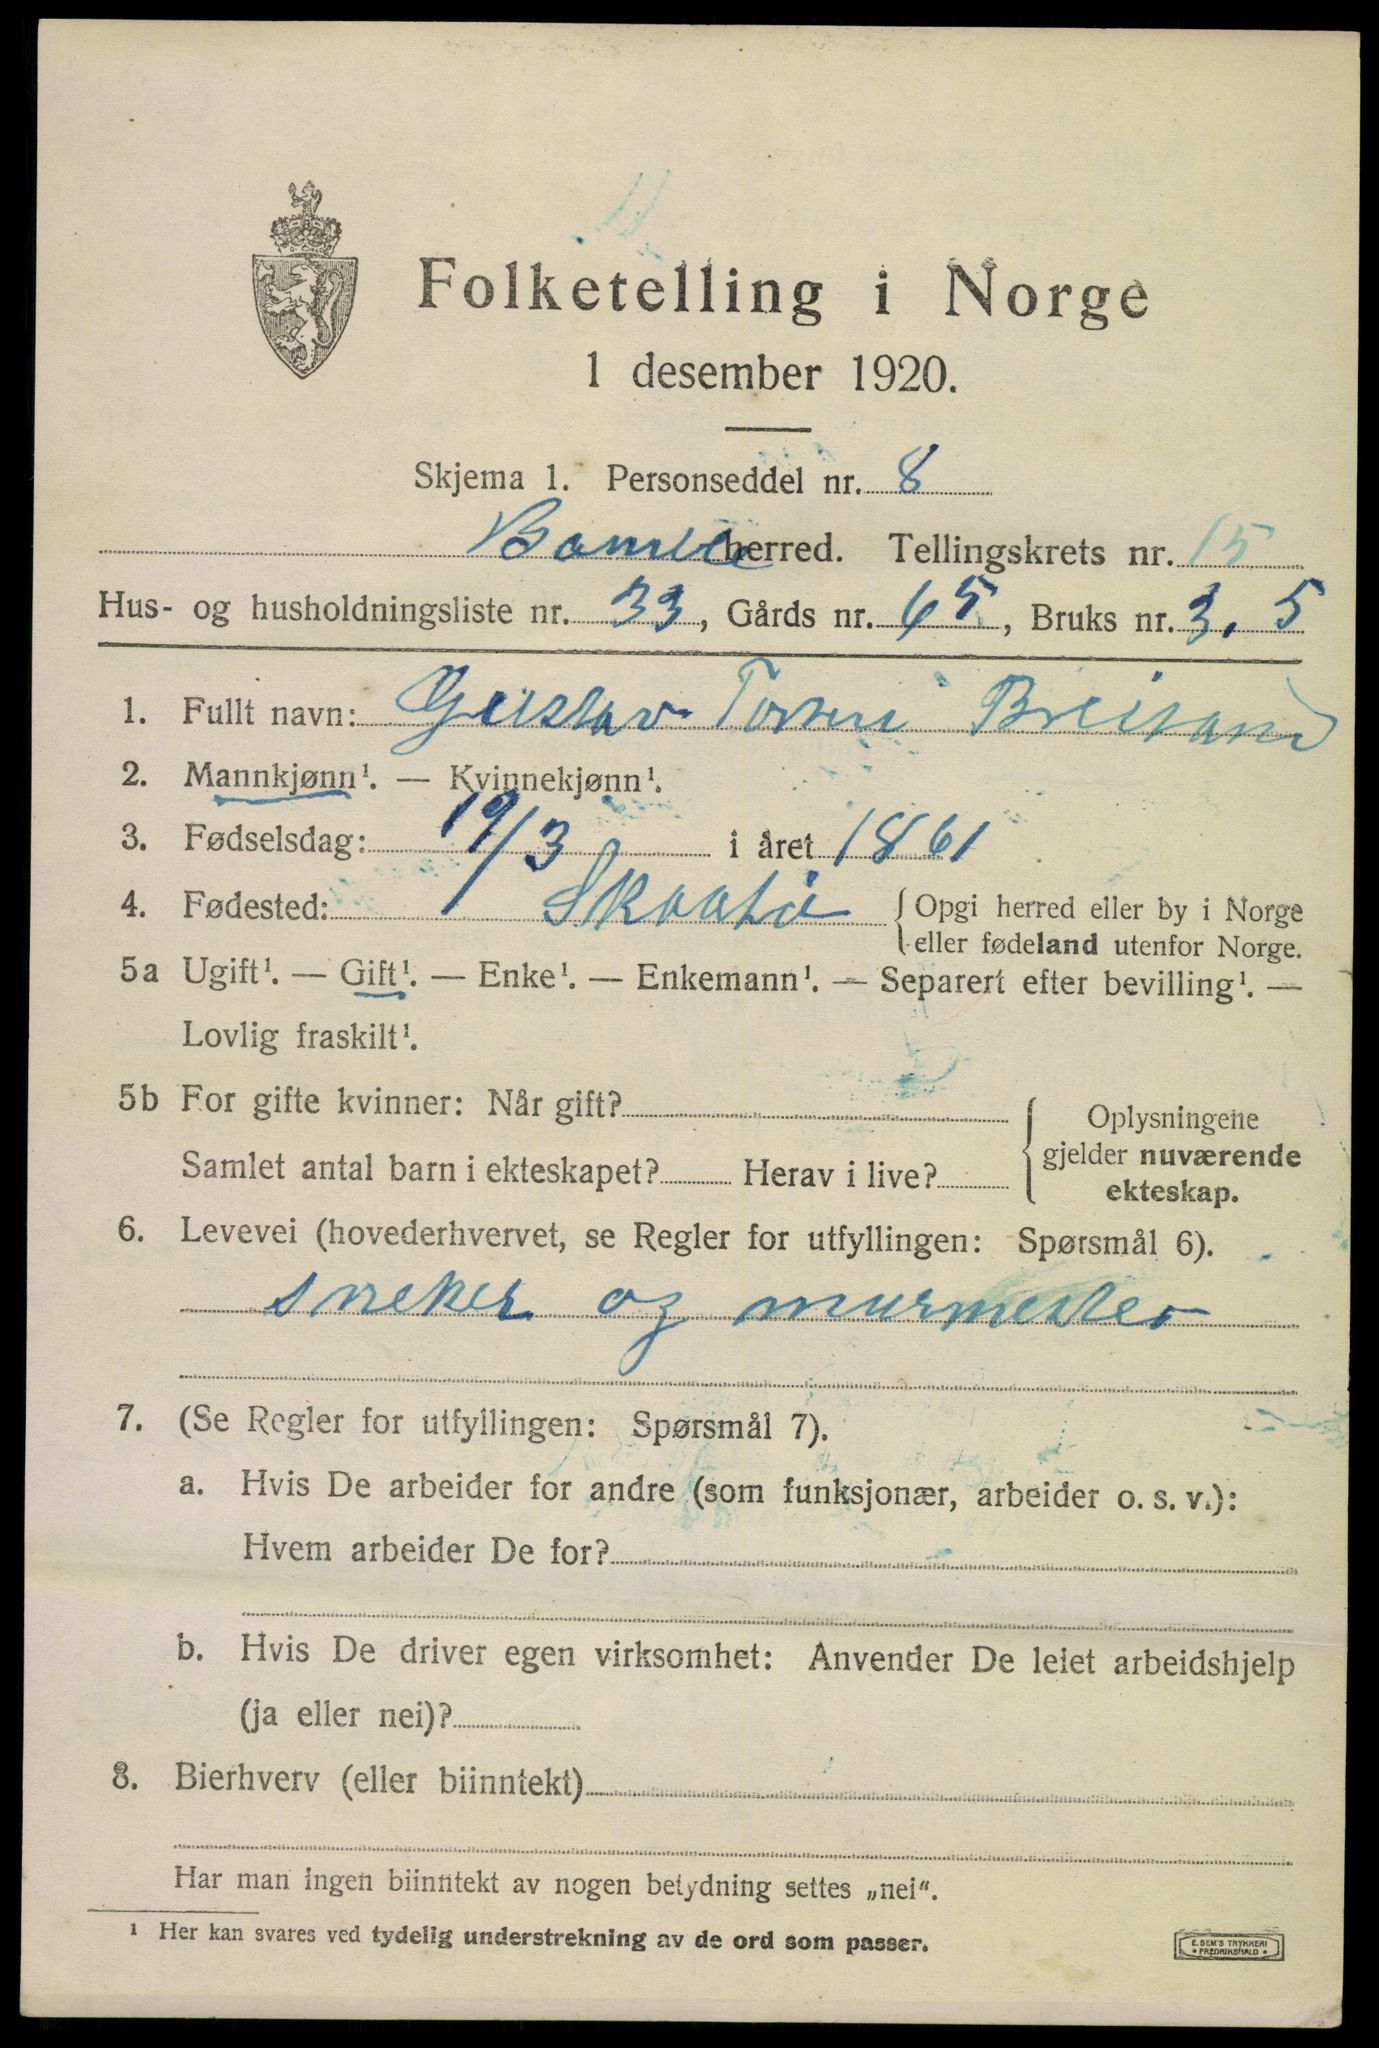 Folketelling i Norge
1 desember 1920.
Skjema 1. Personseddel nr. 8
Bamble herred. Tellingskrets nr. 15
Hus- og husholdningsliste nr. 33, Gårds nr. 65, Bruks nr. 3. 5
1. Fullt navn: Gustav
2. Mannkjønn¹. — Kvinnekjønn¹.
3. Fødselsdag: 19/3 i året 1861
4. Fødested: Skaatø { Opgi herred eller by i Norge
eller fødeland utenfor Norge.
5a Ugift¹. — Gift¹. — Enke¹. — Enkemann¹. — Separert efter bevilling¹. —
Lovlig fraskilt¹.
5b For gifte kvinner: Når gift?
Samlet antal barn i ekteskapet? Herav i live?
{ Oplysningene
gjelder nuværende
ekteskap.
6. Levevei (hovederhvervet, se Regler for utfyllingen: Spørsmål 6).
sneker og murmester
7. (Se Regler for utfyllingen: Spørsmål 7).
a. Hvis De arbeider for andre (som funksjonær, arbeider o. s. v.):
Hvem arbeider De for?
b. Hvis De driver egen virksomhet: Anvender De leiet arbeidshjelp
(ja eller nei)?
8. Bierhverv (eller biinntekt)
Har man ingen biinntekt av nogen betydning settes „nei“.
¹ Her kan svares ved tydelig understrekning av de ord som passer.
E. SEM'S TRYKKERI
• FREDRIKSHALD •